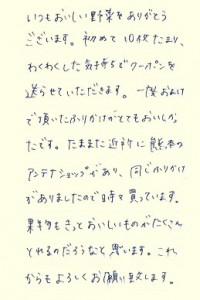 いつもおいしい野菜をありがとう
ございます。初めて10枚たまり、
わくわくした気持ちでクーポンを
送らせていただきます。一度おまけ
で頂いたふりかけがとてもおいしかっ
たです。たまたま近所に熊本の
アンテナショップがあり、同じふりかけ
がありましたので時々買っています。
果物もきっとおいしいものがたくさん
とれるのだろうなと思います。これ
からもよろしくお願い致します。